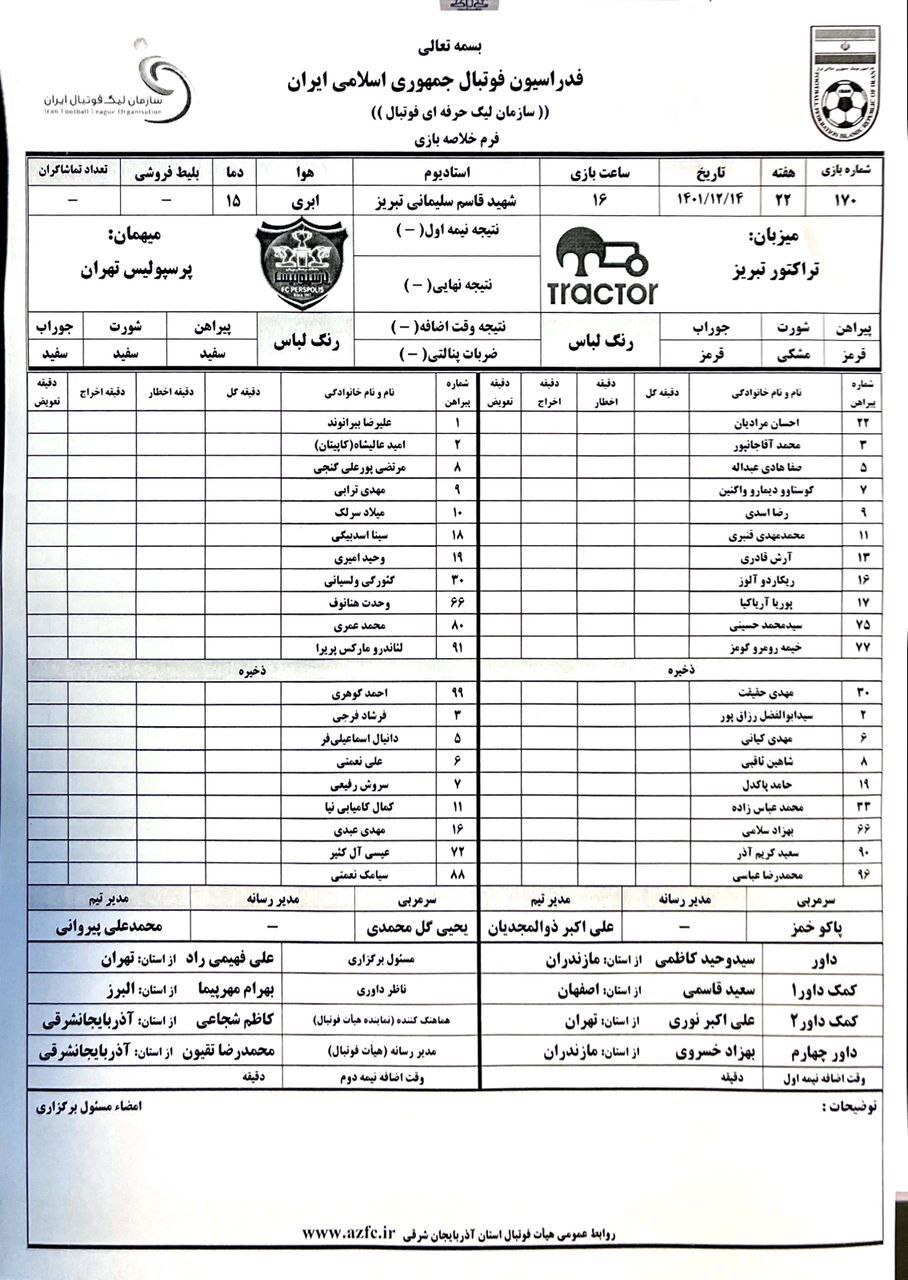 بسمه تعالی
فدراسیون فوتبال جمهوری اسلامی ایران
(( سازمان لیگ حرفه ای فوتبال ))
فرم خلاصه بازی
سازمان لیگ فوتبال ایران
Iran Football League Organisation
FOOTBALL FEDERATION ISLAMIC REPUBLIC OF IRAN
شماره بازی هفته تاریخ ساعت بازی استادیوم هوا دما بلیط فروشی تعداد تماشاگران
۱۷۰ ۲۲ ۱۴۰۱/۱۲/۱۴ ۱۶ شهید قاسم سلیمانی تبریز ابری ۱۵ – –
میزبان:
تراکتور تبریز
TRACTOR
نتیجه نیمه اول( – )
نتیجه نهایی( – )
FC PERSPOLIS
میهمان:
پرسپولیس تهران
پیراهن شورت جوراب رنگ لباس نتیجه وقت اضافه( – ) رنگ لباس پیراهن شورت جوراب
قرمز مشکی قرمز ضربات پنالتی( – ) سفید سفید سفید
شماره پیراهن نام و نام خانوادگی دقیقه گل دقیقه اخطار دقیقه اخراج دقیقه تعویض شماره پیراهن نام و نام خانوادگی دقیقه گل دقیقه اخطار دقیقه اخراج دقیقه تعویض
۲۲ احسان مرادیان ۱ علیرضا بیرانوند
۳ محمد آقاجانپور ۲ امید عالیشاه(کاپیتان)
۵ صفا هادی عبداله ۸ مرتضی پورعلی گنجی
۷ گوستاوو دیمارو واگنین ۹ مهدی ترابی
۹ رضا اسدی ۱۰ میلاد سرلک
۱۱ محمدمهدی قنبری ۱۸ سینا اسدبیگی
۱۳ آرش قادری ۱۹ وحید امیری
۱۶ ریکاردو آلوز ۳۰ گئورگی ولسیانی
۱۷ پوریا آریاکیا ۶۶ وحدت هنانوف
۷۵ سیدمحمد حسینی ۸۰ محمد عمری
۷۷ خیمه رومرو گومز ۹۱ لئاندرو مارکس پریرا
ذخیره ذخیره
۳۰ مهدی حقیقت ۹۹ احمد گوهری
۲ سیدابوالفضل رزاق پور ۳ فرشاد فرجی
۶ مهدی کیانی ۵ دانیال اسماعیلی‌فر
۸ شاهین ثاقبی ۶ علی نعمتی
۱۹ حامد پاکدل ۷ سروش رفیعی
۳۳ محمد عباس زاده ۱۱ کمال کامیابی نیا
۶۶ بهزاد سلامی ۱۶ مهدی عبدی
۹۰ سعید کریم آذر ۷۲ عیسی آل کثیر
۹۶ محمدرضا عباسی ۸۸ سیامک نعمتی
سرمربی مدیر رسانه مدیر تیم سرمربی مدیر رسانه مدیر تیم
پاکو خمز – علی اکبر ذوالمجدیان یحیی گل محمدی – محمدعلی پیروانی
داور سیدوحید کاظمی از استان: مازندران مسئول برگزاری علی فهیمی راد از استان: تهران
کمک داور۱ سعید قاسمی از استان: اصفهان ناظر داوری بهرام مهرپیما از استان: البرز
کمک داور۲ علی اکبر نوری از استان: تهران هماهنگ کننده (نماینده هیأت فوتبال) کاظم شجاعی از استان: آذربایجانشرقی
داور چهارم بهزاد خسروی از استان: مازندران مدیر رسانه (هیأت فوتبال) محمدرضا تقیون از استان: آذربایجانشرقی
وقت اضافه نیمه اول دقیقه وقت اضافه نیمه دوم دقیقه
توضیحات : امضاء مسئول برگزاری
روابط عمومی هیأت فوتبال استان آذربایجان شرقی www.azfc.ir